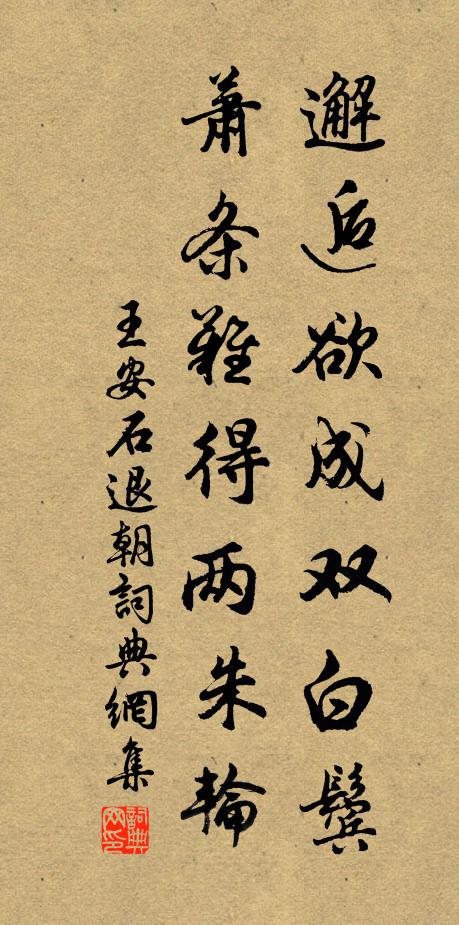 邂逅欲成双白鬓
萧条难得两朱轮
王安石退朝詞典網集
詞典网印